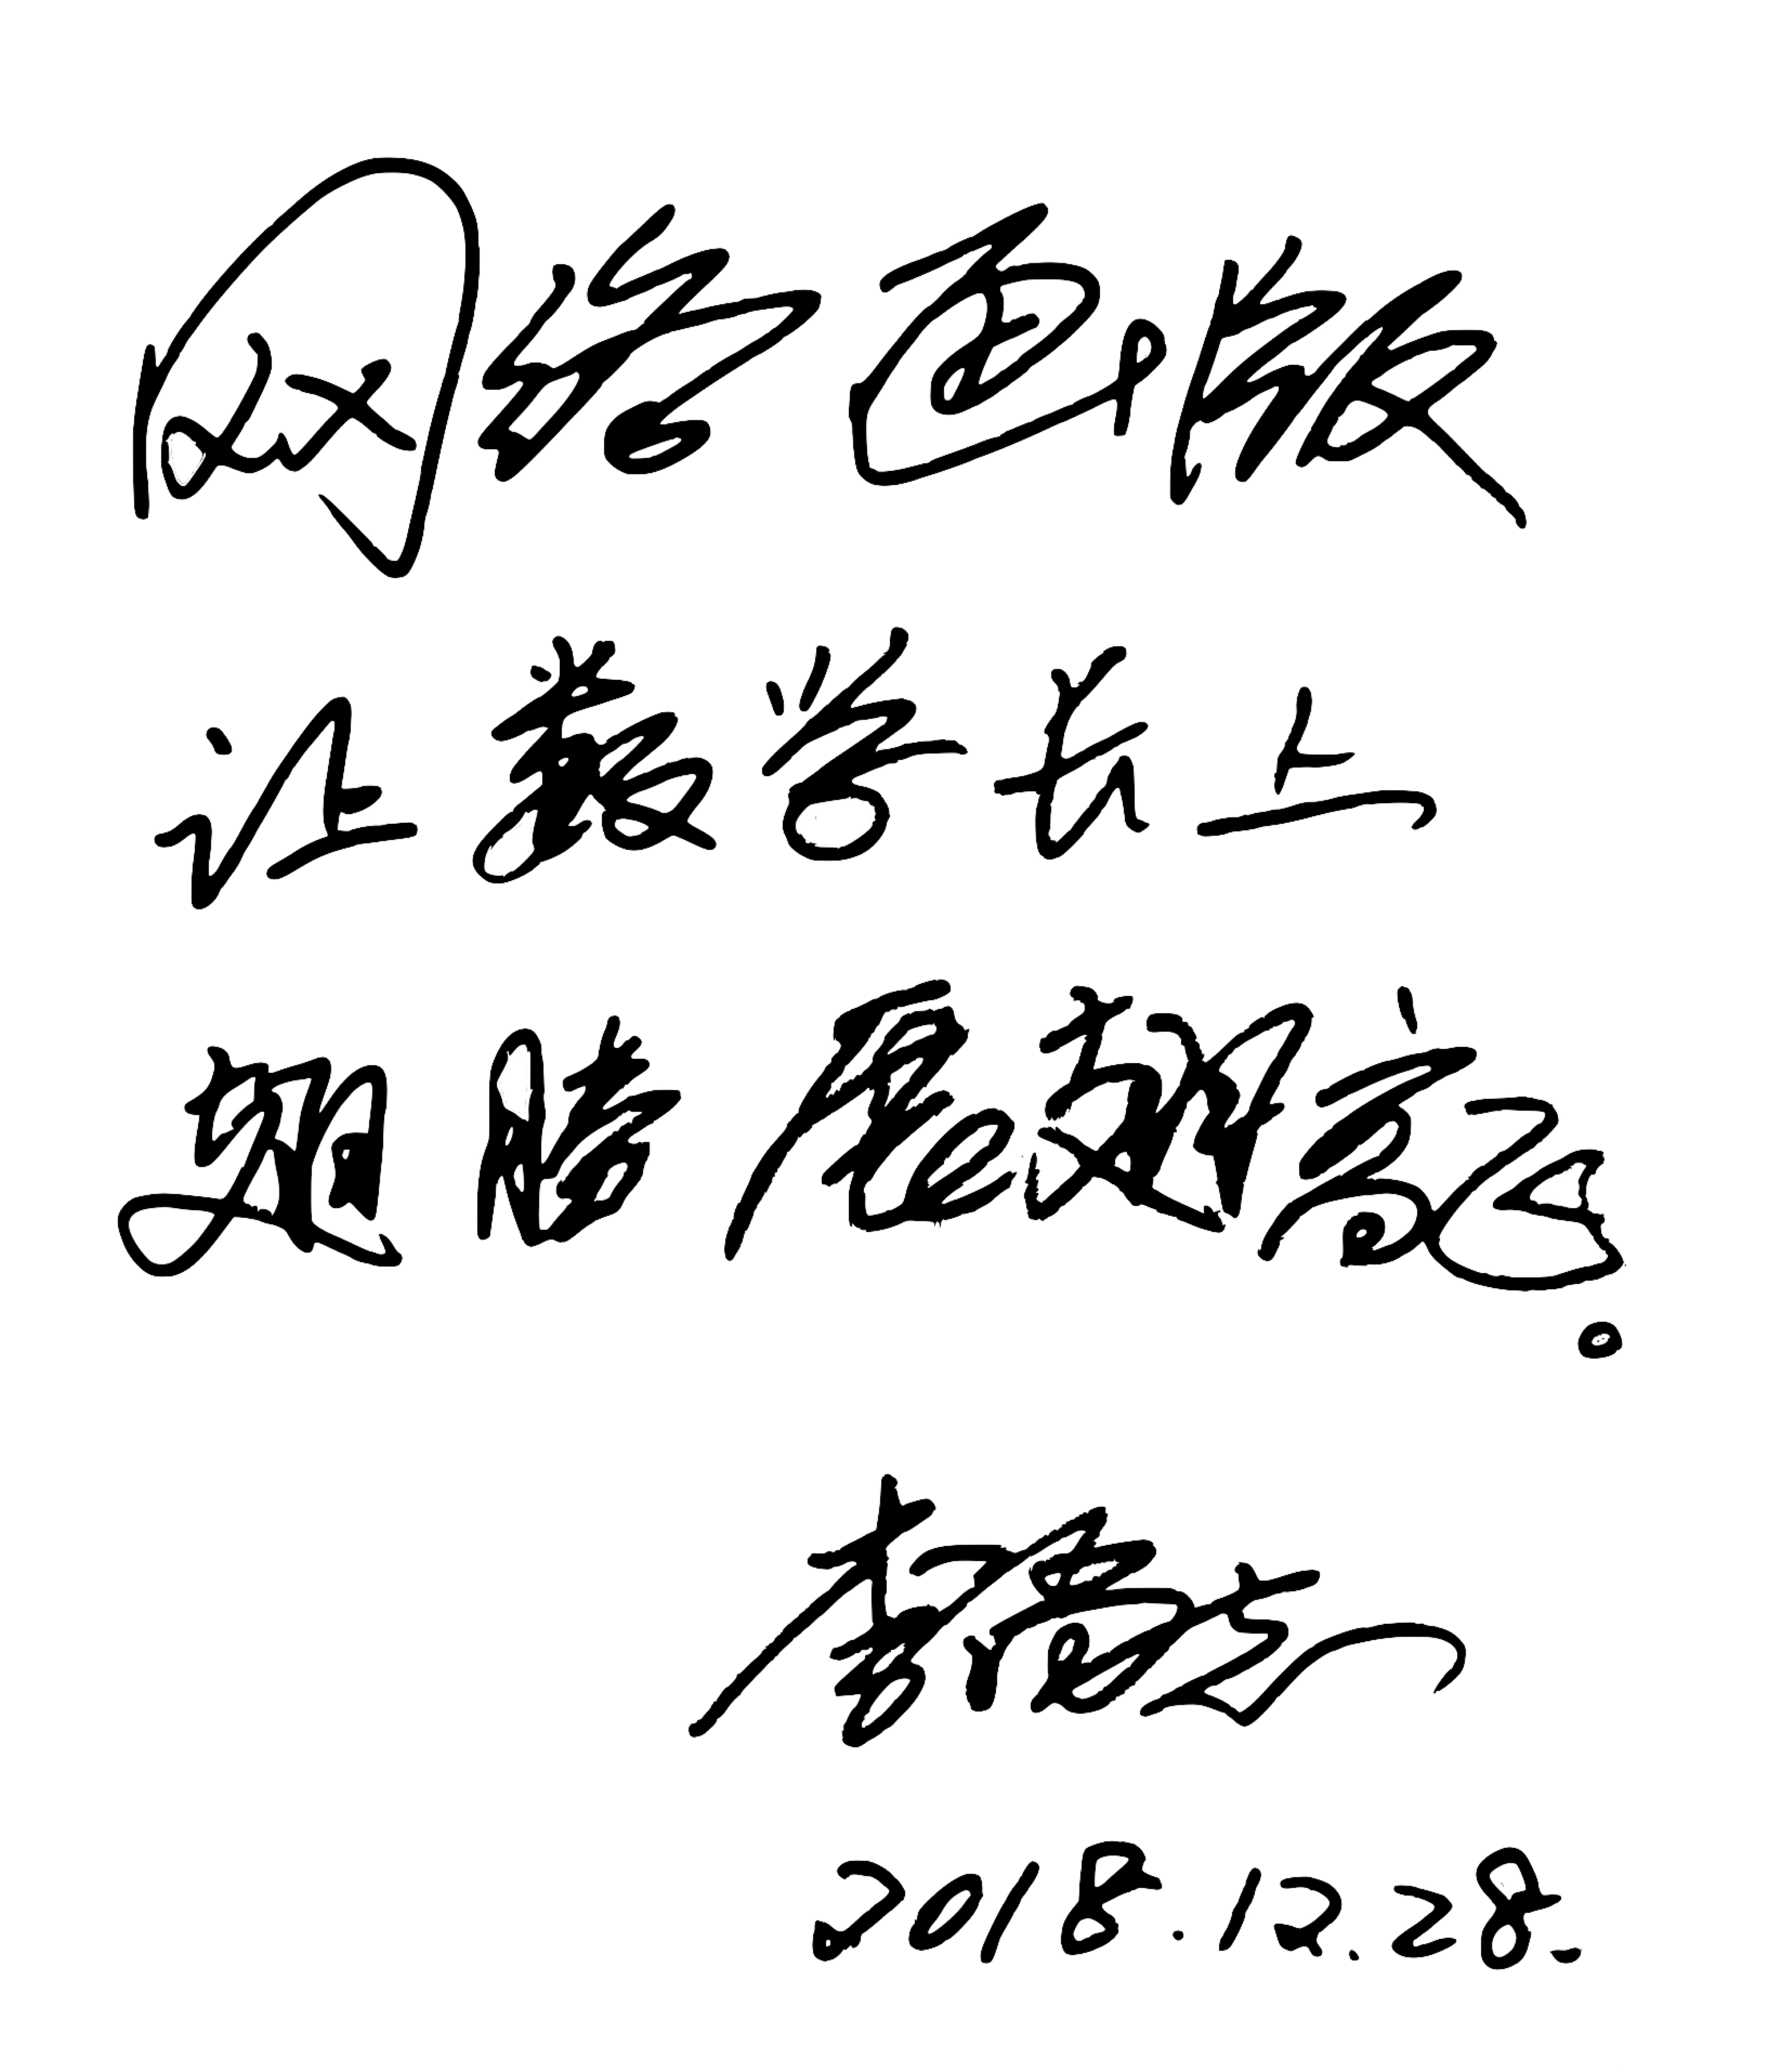 网络画板
让数学长上
翅膀展翅高飞。
李尚志
2018.12.28.